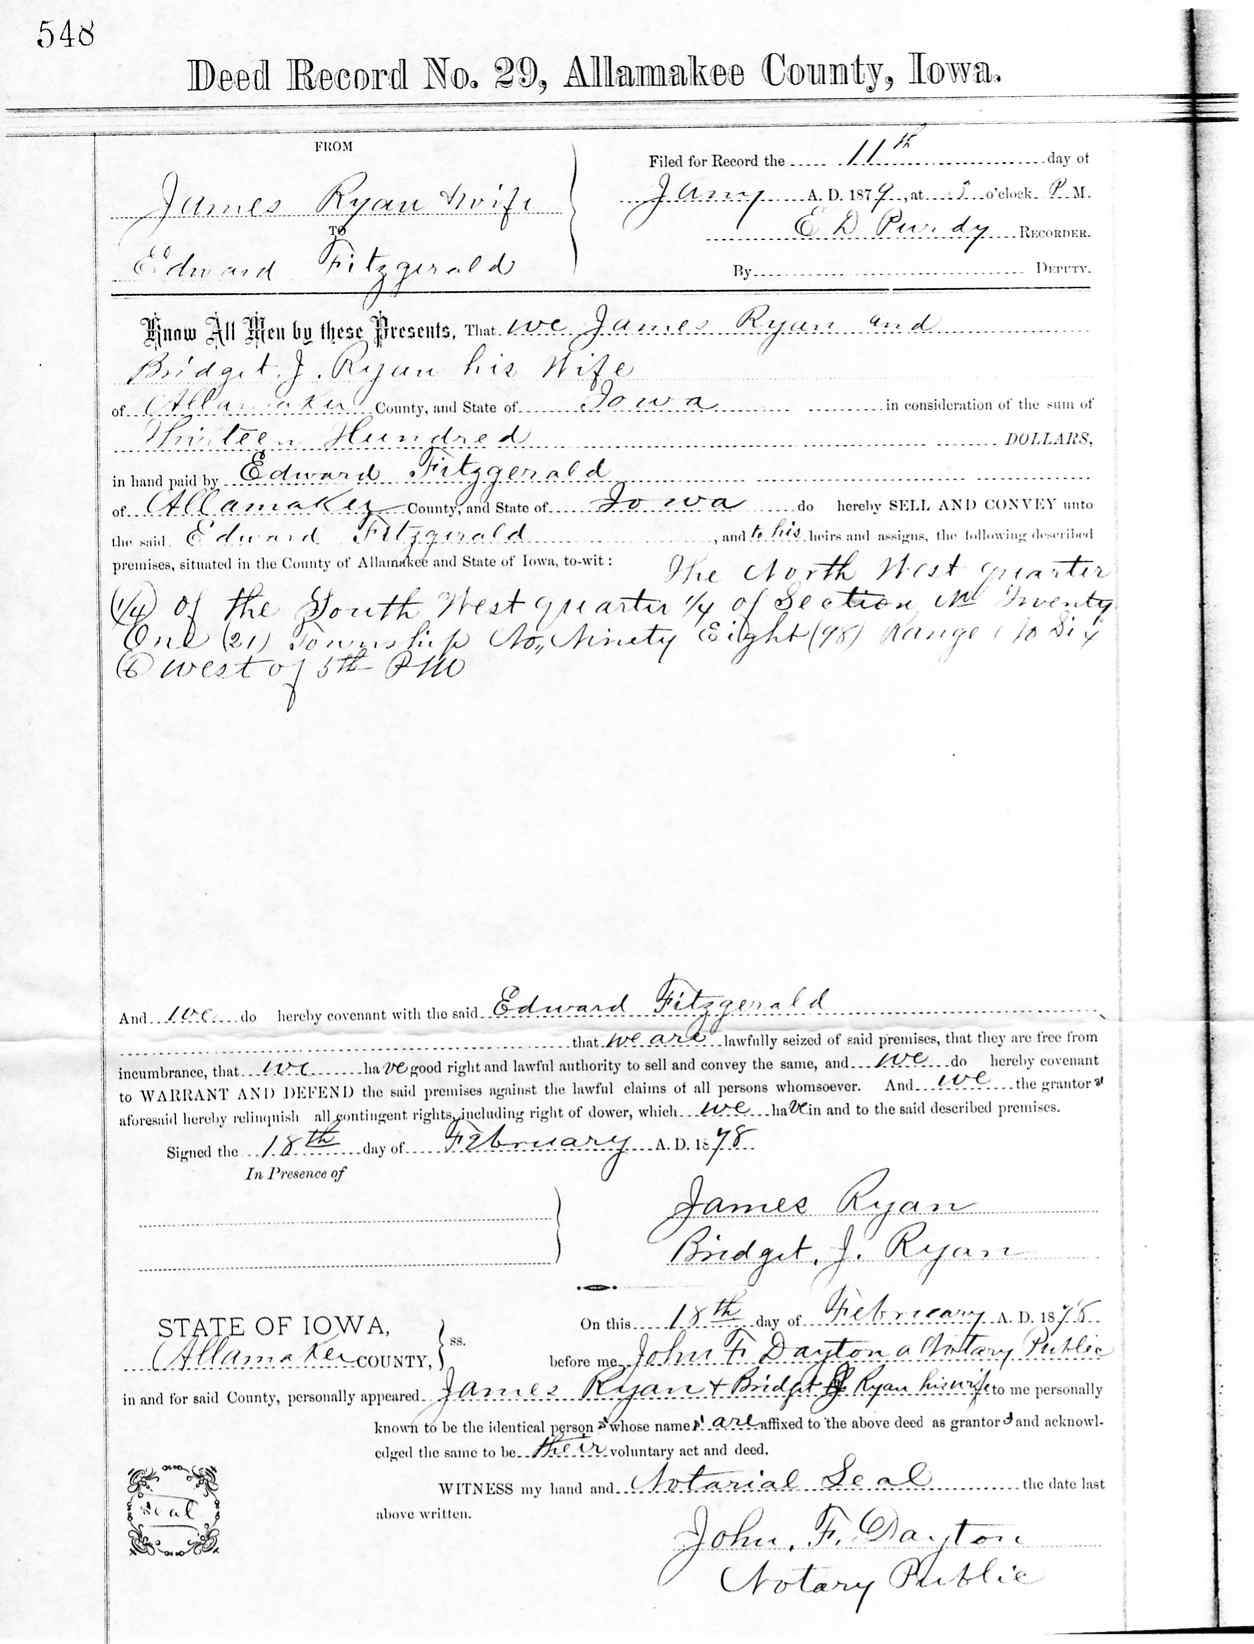 548
Deed Record No. 29, Allamakee County, Iowa.
FROM
James Ryan & wife
TO
Edward Fitzgerald
Filed for Record the 11th day of
Jany A. D. 1879, at 3 o'clock P. M.
E D Purdy RECORDER.
By DEPUTY.
Know All Men by these Presents, That we James Ryan and
Bridget J. Ryan his Wife
of Allamakee County, and State of Iowa in consideration of the sum of
Thirteen Hundred DOLLARS,
in hand paid by Edward Fitzgerald
of Allamakee County, and State of Iowa do hereby SELL AND CONVEY unto
the said Edward Fitzgerald, and to his heirs and assigns, the following described
premises, situated in the County of Allamakee and State of Iowa, to-wit: The North West quarter
(1/4) of the South West quarter 1/4 of Section No Twenty
One (21) Township No,, Ninety Eight (98) Range No Six
(6) west of 5th P M
And we do hereby covenant with the said Edward Fitzgerald
that we are lawfully seized of said premises, that they are free from
incumbrance, that we have good right and lawful authority to sell and convey the same, and we do hereby covenant
to WARRANT AND DEFEND the said premises against the lawful claims of all persons whomsoever. And we the grantors
aforesaid hereby relinquish all contingent rights, including right of dower, which we have in and to the said described premises.
Signed the 18th day of February A. D. 1878
In Presence of
James Ryan
Bridget. J. Ryan
STATE OF IOWA,
Allamakee COUNTY, ss.
On this 18th day of February A. D. 1878
before me John F. Dayton a Notary Public
in and for said County, personally appeared James Ryan & Bridget J Ryan his wife to me personally
known to be the identical persons whose names are affixed to the above deed as grantors and acknowl-
edged the same to be their voluntary act and deed.
WITNESS my hand and Notarial Seal the date last
above written.
Seal
John. F. Dayton
Notary Public